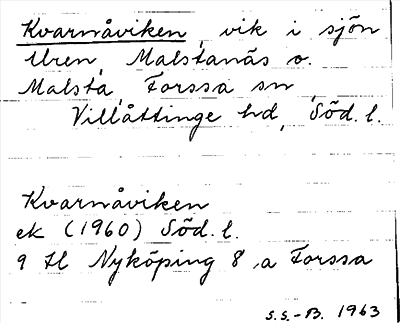 Kvarnåviken, vik i sjön
Uren, Malstanäs o.
Malsta, Forssa sn,
Villåttinge hd, Söd. l.
Kvarnåviken
ek (1960) Söd. l.
9 H Nyköping 8, a Forssa
S.S.-B. 1963